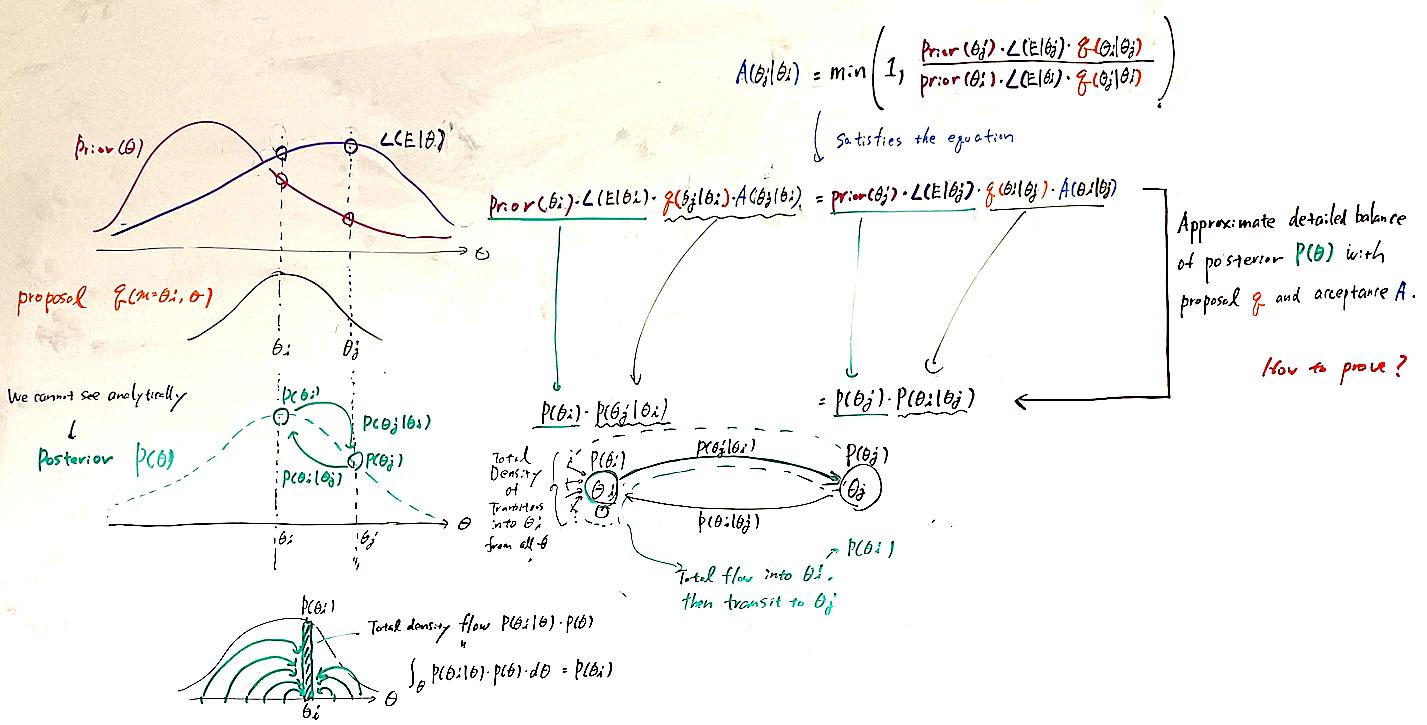 A(θj|θi) = min(1, Prior(θj)·L(E|θj)·q(θi|θj) / prior(θi)·L(E|θi)·q(θj|θi))
Satisfies the equation
Prior(θi)·L(E|θi)·q(θj|θi)·A(θj|θi) = prior(θj)·L(E|θj)·q(θi|θj)·A(θi|θj)
Approximate detailed balance
of posterior P(θ) with
proposal q and acceptance A.
How to prove?
P(θi)·P(θj|θi) = P(θj)·P(θi|θj)
Prior(θ)
L(E|θ)
θ
proposal q(m=θi, σ)
θi
θj
We cannot see analytically
Posterior P(θ)
P(θi)
P(θj|θi)
P(θj)
P(θi|θj)
θ
θi
θj
Total
Density
of
Transitions
into θi
from all θ
P(θi)
θi
P(θj|θi)
P(θj)
θj
P(θi|θj)
P(θi)
Total flow into θi,
then transit to θj
P(θi)
Total density flow P(θi|θ)·P(θ)
"
∫θ P(θi|θ)·P(θ)·dθ = P(θi)
θ
θi